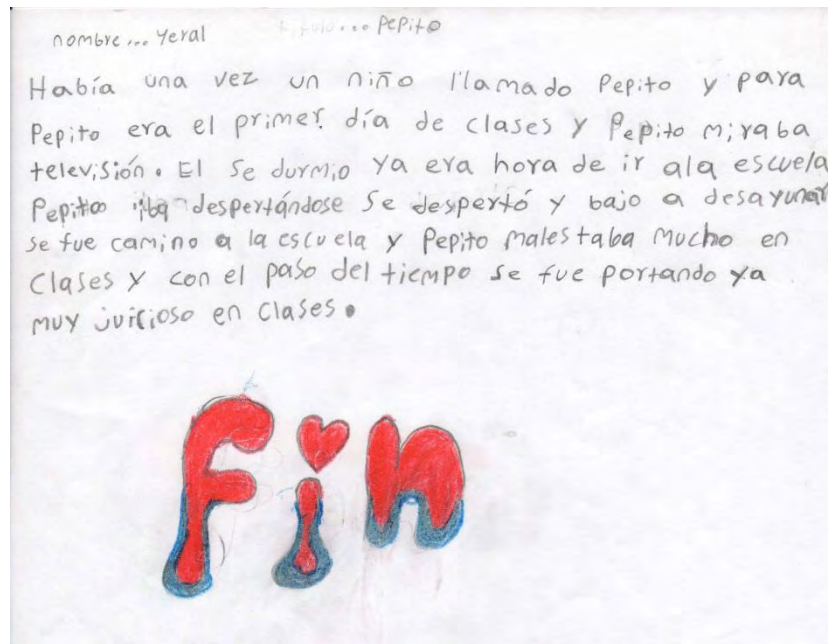 nombre... Yeral título... Pepito
Había una vez un niño llamado Pepito y para
Pepito era el primer día de clases y Pepito miraba
televisión. El se durmio ya era hora de ir ala escuela
Pepito iba despertándose se despertó y bajo a desayunar
se fue camino a la escuela y Pepito malestaba mucho en
clases y con el paso del tiempo se fue portando ya
muy juicioso en clases.
Fin